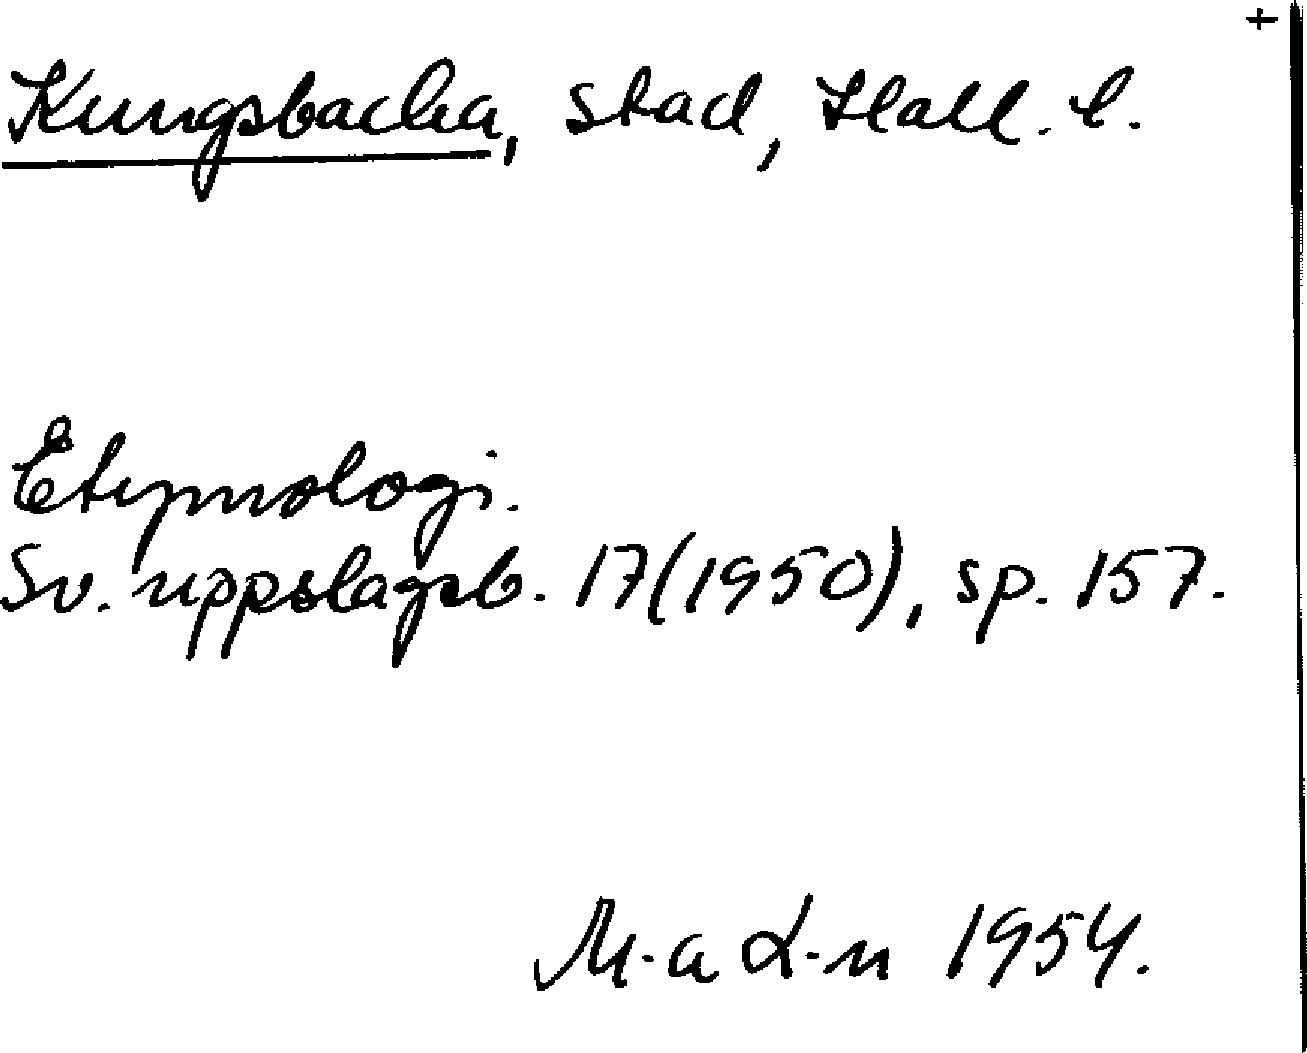 +
Kungsbacka, stad, Hall. l.
Etymologi.
Sv. uppslagsb. 17(1950), sp. 157.
M-a L-n 1954.